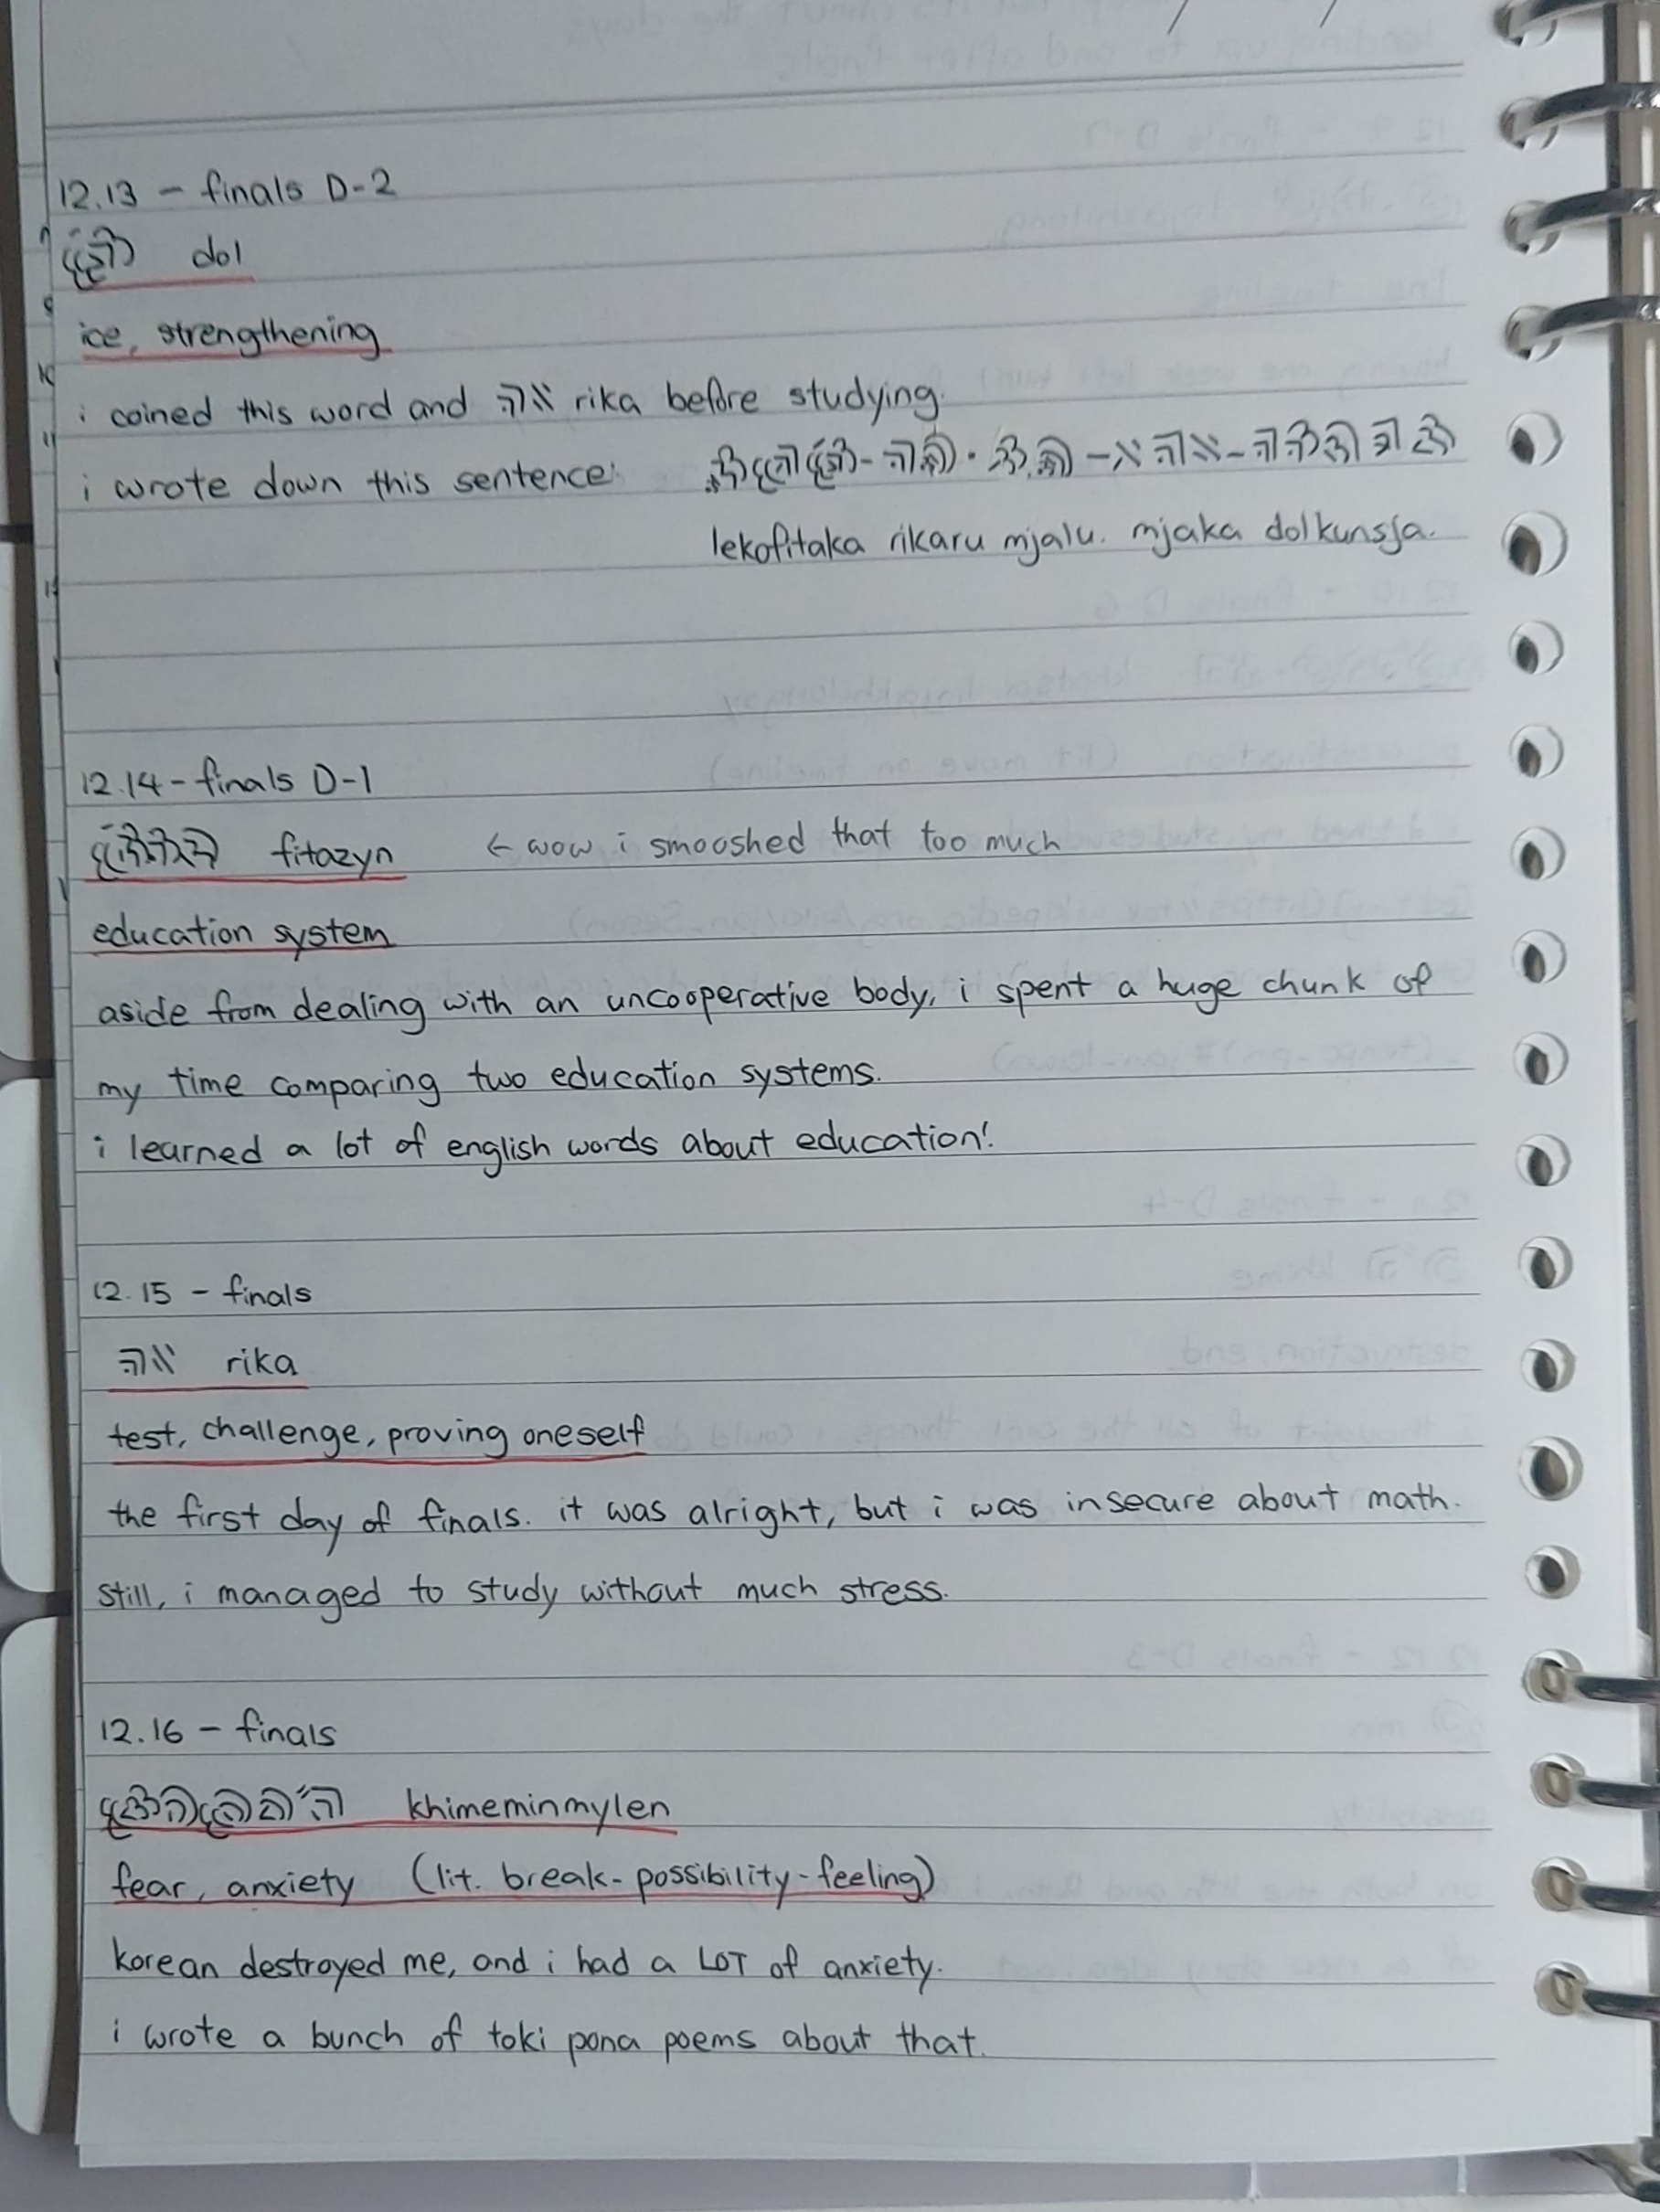 12.13 - finals D-2
dol
ice, strengthening
i coined this word and rika before studying.
i wrote down this sentence:
lekofitaka rikaru mjalu. mjaka dolkunsja.
12.14 - finals D-1
fitazyn ← wow i smooshed that too much
education system
aside from dealing with an uncooperative body, i spent a huge chunk of
my time comparing two education systems.
i learned a lot of english words about education!
12.15 - finals
rika
test, challenge, proving oneself
the first day of finals. it was alright, but i was insecure about math.
still, i managed to study without much stress.
12.16 - finals
khimeminmylen
fear, anxiety (lit. break-possibility-feeling)
korean destroyed me, and i had a LOT of anxiety.
i wrote a bunch of toki pona poems about that.